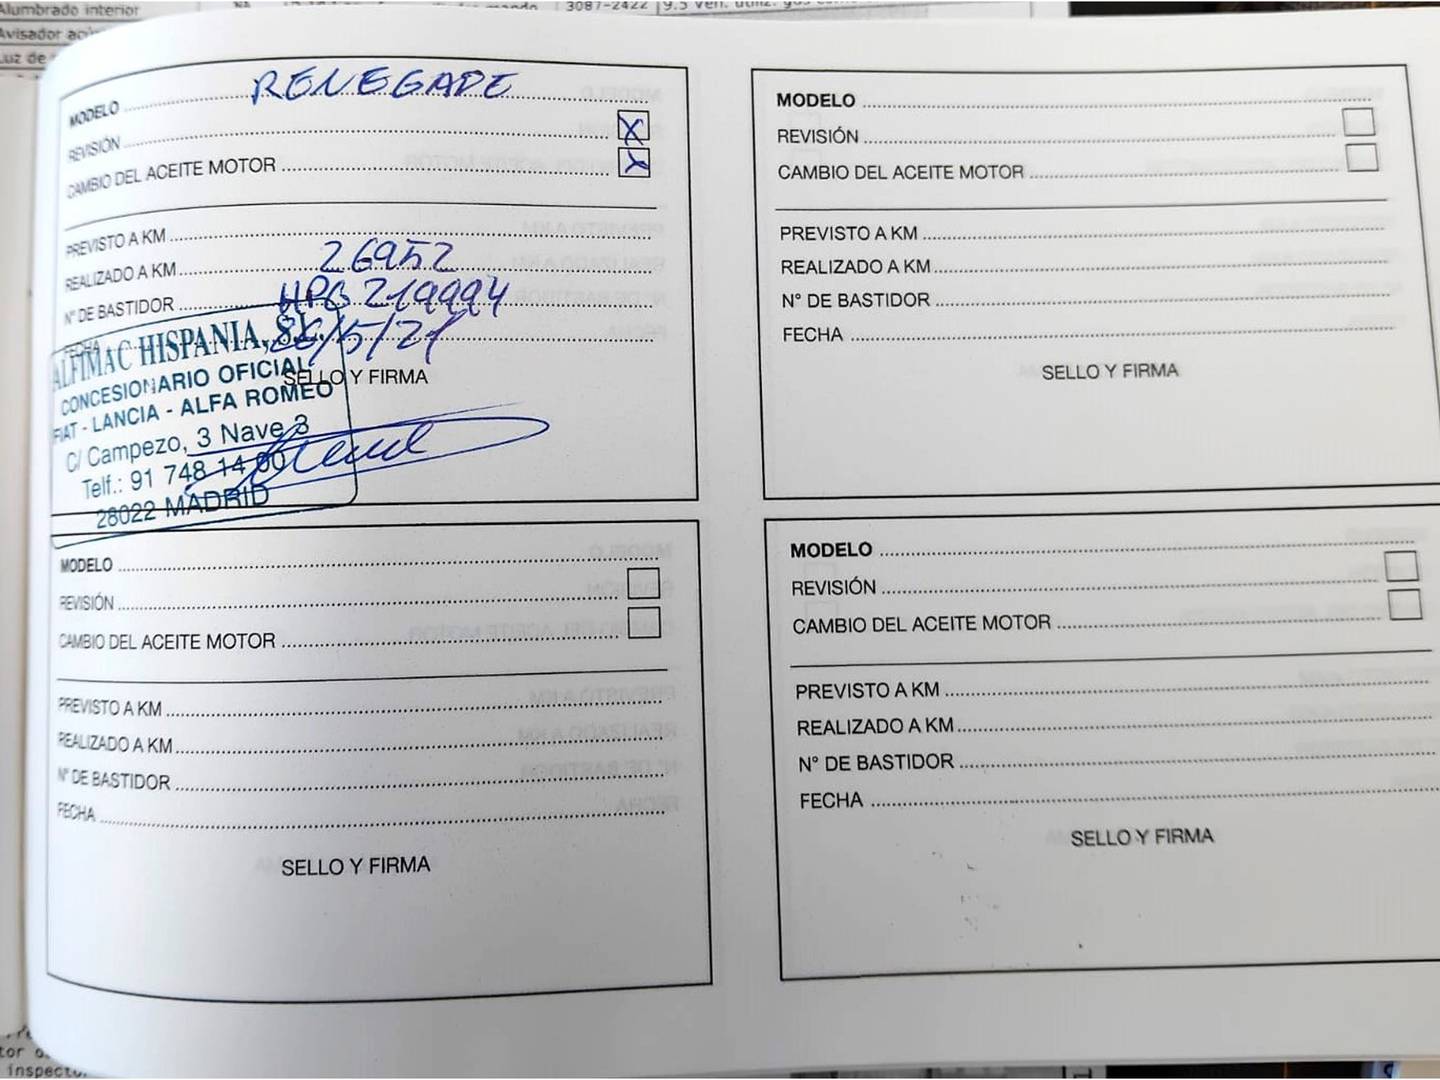 Alumbrado interior
3087-2422
Avisador
Luz de
MODELO RENEGADE
REVISIÓN X
CAMBIO DEL ACEITE MOTOR X
PREVISTO A KM
REALIZADO A KM 26952
N° DE BASTIDOR HPG 219994
FECHA 26/5/21
SELLO Y FIRMA
ALFIMAC HISPANIA, S.L.
CONCESIONARIO OFICIAL
FIAT - LANCIA - ALFA ROMEO
C/ Campezo, 3 Nave 3
Telf.: 91 748 14 00
28022 MADRID
MODELO
REVISIÓN
CAMBIO DEL ACEITE MOTOR
PREVISTO A KM
REALIZADO A KM
N° DE BASTIDOR
FECHA
SELLO Y FIRMA
MODELO
REVISIÓN
CAMBIO DEL ACEITE MOTOR
PREVISTO A KM
REALIZADO A KM
N° DE BASTIDOR
FECHA
SELLO Y FIRMA
MODELO
REVISIÓN
CAMBIO DEL ACEITE MOTOR
PREVISTO A KM
REALIZADO A KM
N° DE BASTIDOR
FECHA
SELLO Y FIRMA